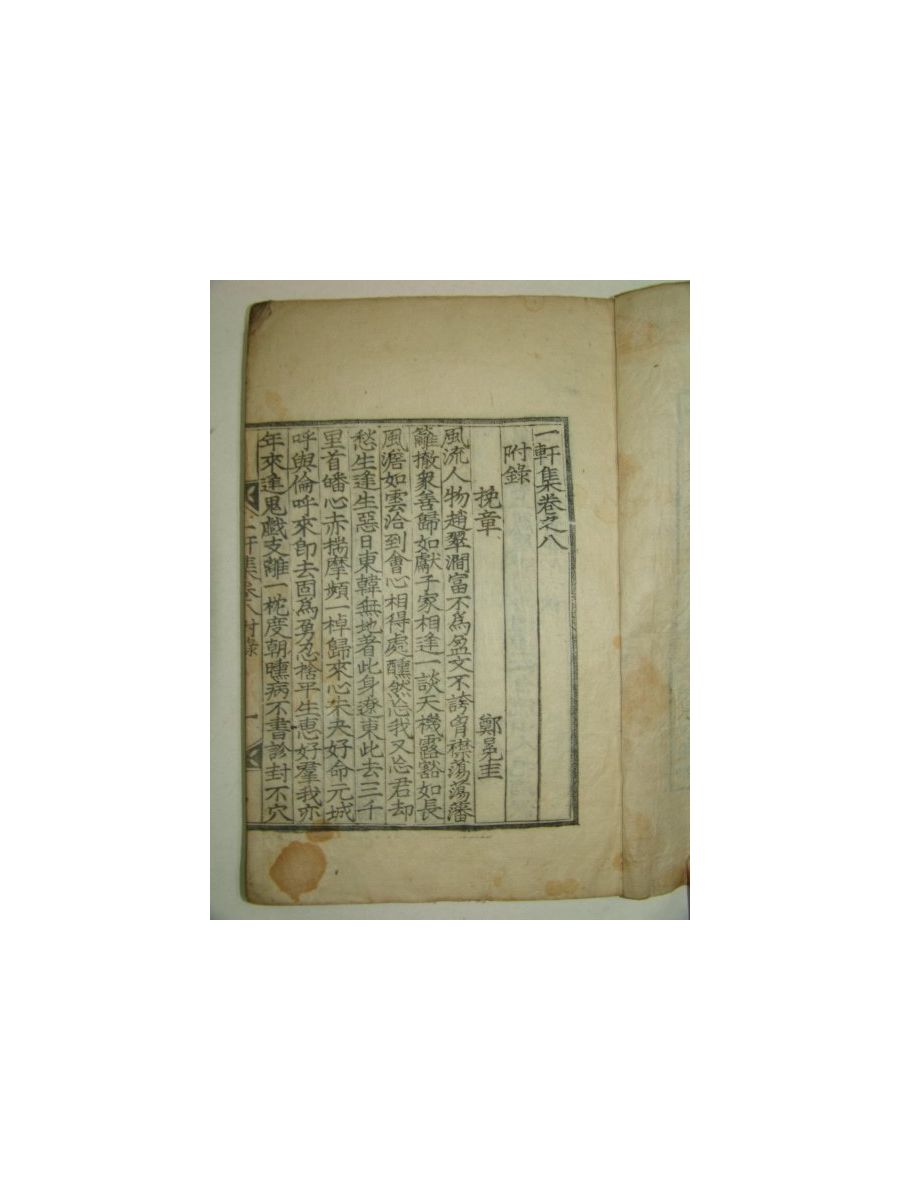 一軒集卷之八
附錄
挽章 鄭冕圭
風流人物趙翠澗富不爲盈文不誇胷襟蕩蕩藩
籬撤衆善歸如獻子家相逢一談天機露豁如長
風澹如雲洽到會心相得處醺然忘我又忘君却
愁生逢生惡日東韓無地著此身遼東此去三千
里首皤心赤揣摩頻一棹歸來心未央好命元城
呼與倫呼來即去固爲勇忍捨平生惠好羣我亦
年來逢鬼戲支離一枕度朝曛病不書診封不穴
一軒集卷八 附錄 一